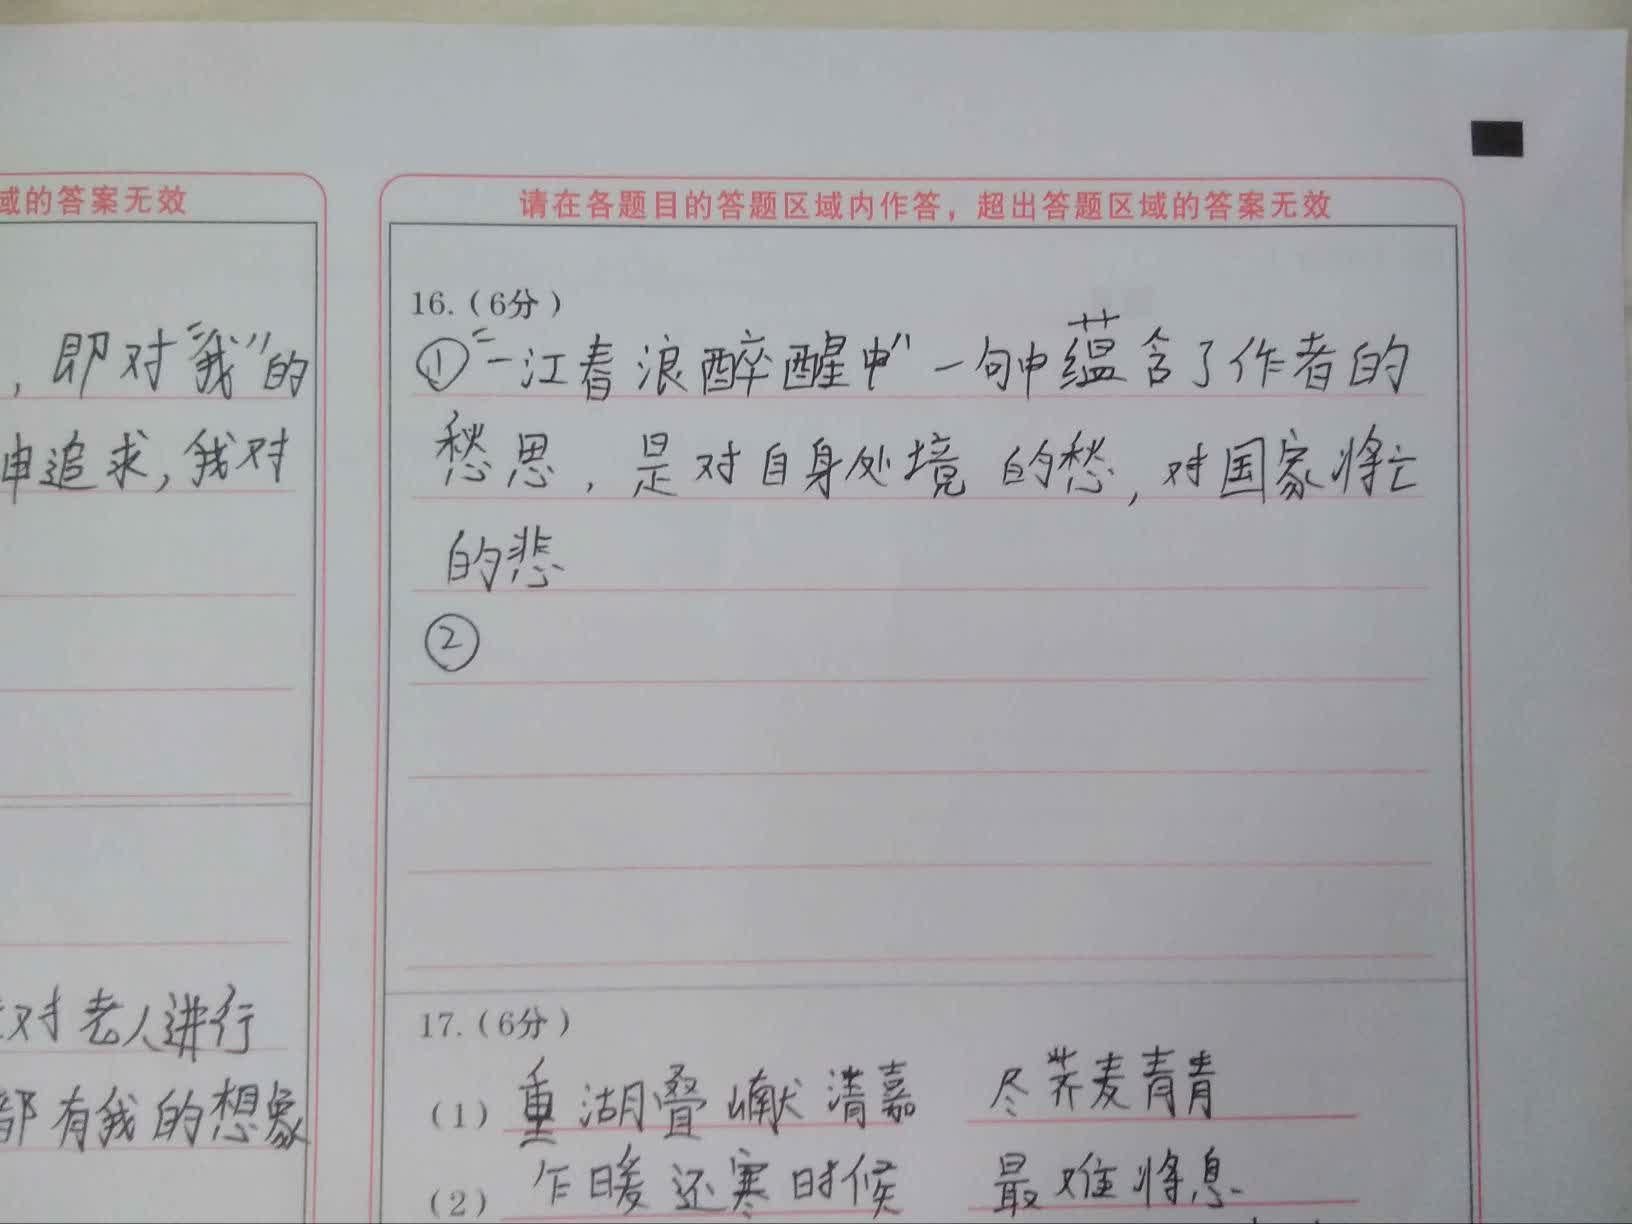 域的答案无效
，即对“我”的
申追求，我对
对老人进行
部有我的想象
请在各题目的答题区域内作答，超出答题区域的答案无效
16.（6分）
①“一江春浪醉醒中”一句中蕴含了作者的
愁思，是对自身处境的愁，对国家将亡
的悲
②
17.（6分）
（1）重湖叠巘清嘉 尽荠麦青青
（2）乍暖还寒时候 最难将息